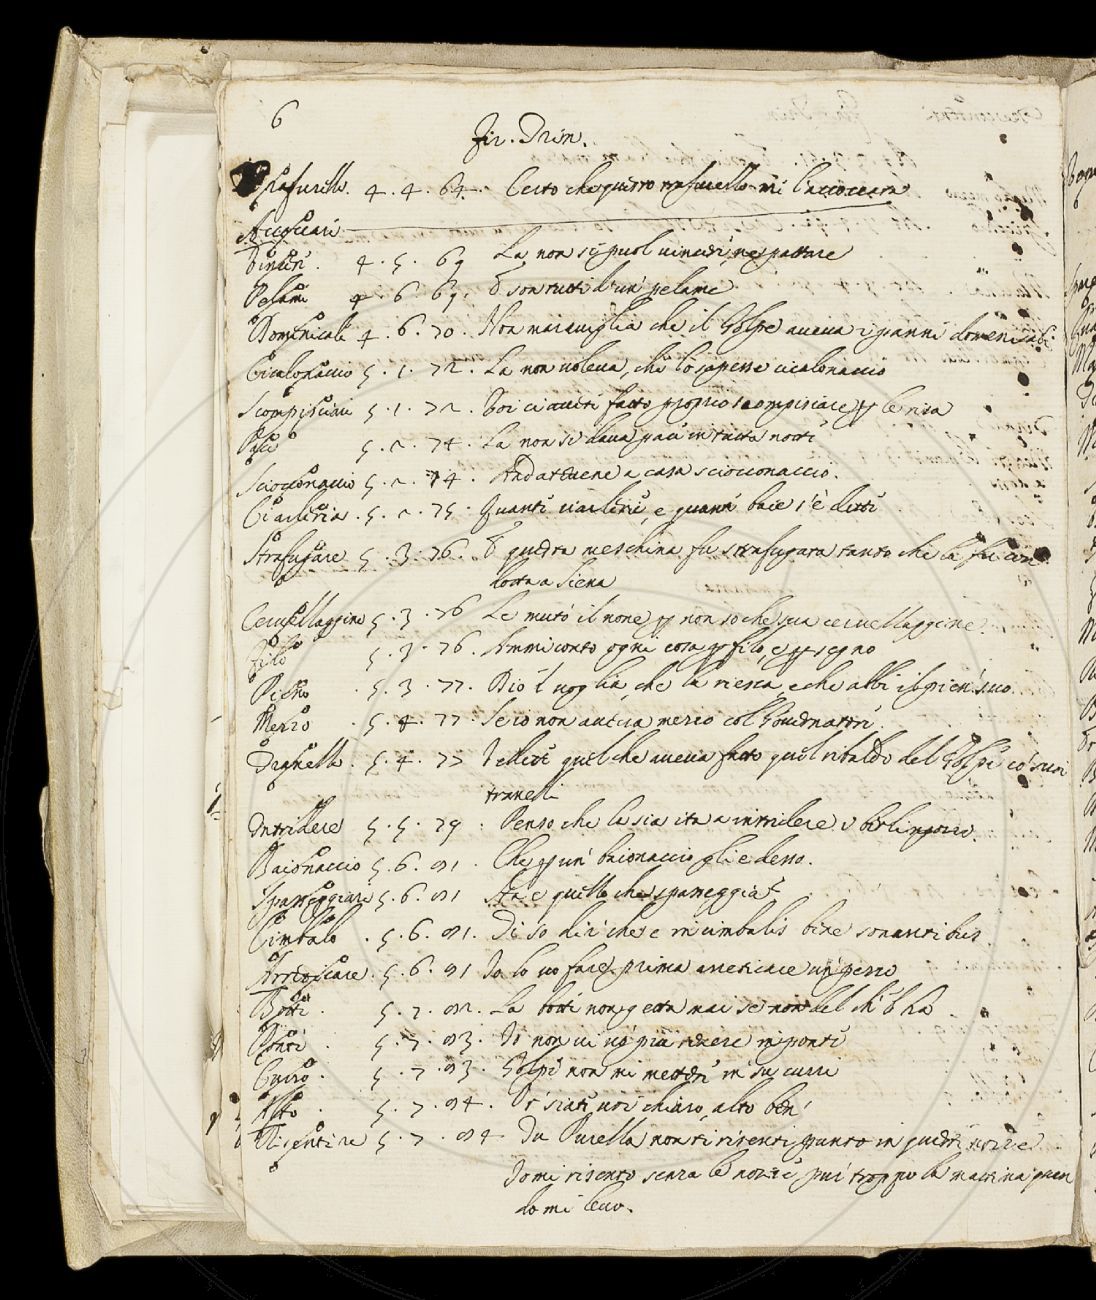 6
Fir. Trin.
Trafurello. 4. 4. 64. Certo che questo trafurello mi l'accoccava
Accoccare
Vincere. 4. 5. 69 La non si puol vincere, ne pattare
Pelame 4. 6. 69. E son tutti d'un pelame
Domenicale 4. 6. 70. Non maraviglia che il Golpe aveva i panni domenicali
Cicalonaccio 5. 1. 72. La non voleva, che lo sapesse cicalonaccio
Scompisciare 5. 1. 72. Voi ci avete fatto proprio scompisciare p le risa
Pace 5. 2. 74. La non si dava pace in tutta notte
Scioccionaccio 5. 2. 74. Andatevene a casa scioccionaccio.
Ciarleria. 5. 2. 75. Quanti ciarlerie, e quante baie s'è dette
Strafugare 5. 3. 76. E questa meschina fu strafugata tanto che la fu con
dotta a Siena
Cervellaggine 5. 3. 76 Le mutò il nome p non so che sua cervellaggine.
Filo 5. 3. 76. Ammi conto ogni cosa p filo, e p segno
Pieno 5. 3. 77. Dio 'l voglia che la riesca, e che abbi il pien suo.
Mezzo. 5. 4. 77. Se io non aveva mezzo col Governatore.
Tranello. 5. 4. 77 Vedete quel che aveva fatto quel ribaldo del Golpe co' suoi
tranelli
Intridere 5. 5. 79. Penso che la sia ita a intridere
Baionaccio 5. 6. 81. Che p un baionaccio gli è desso.
Spasseggiare 5. 6. 81 Ah è quello che spasseggia?
Cimbalo. 5. 6. 81. Di so dire che è in cimbalis bene sonantibus
Arrovesciare. 5. 6. 81 Io lo vo fare prima un pezzo
Botte. 5. 7. 82. La botte non getta mai se non del ch'ella ha
Ponte. 5. 7. 83. Io non vi vo più tenere in ponte
Curro. 5. 7. 83. Golpe non mi mettere in su curri
Alto. 5. 7. 84. Or siate voi chiaro, alto bene
Risentire 5. 7. 84 Tu Purella non ti risenti punto in queste nozze
Io mi risento senza le nozze pur troppo la mattina quan
do mi levo.